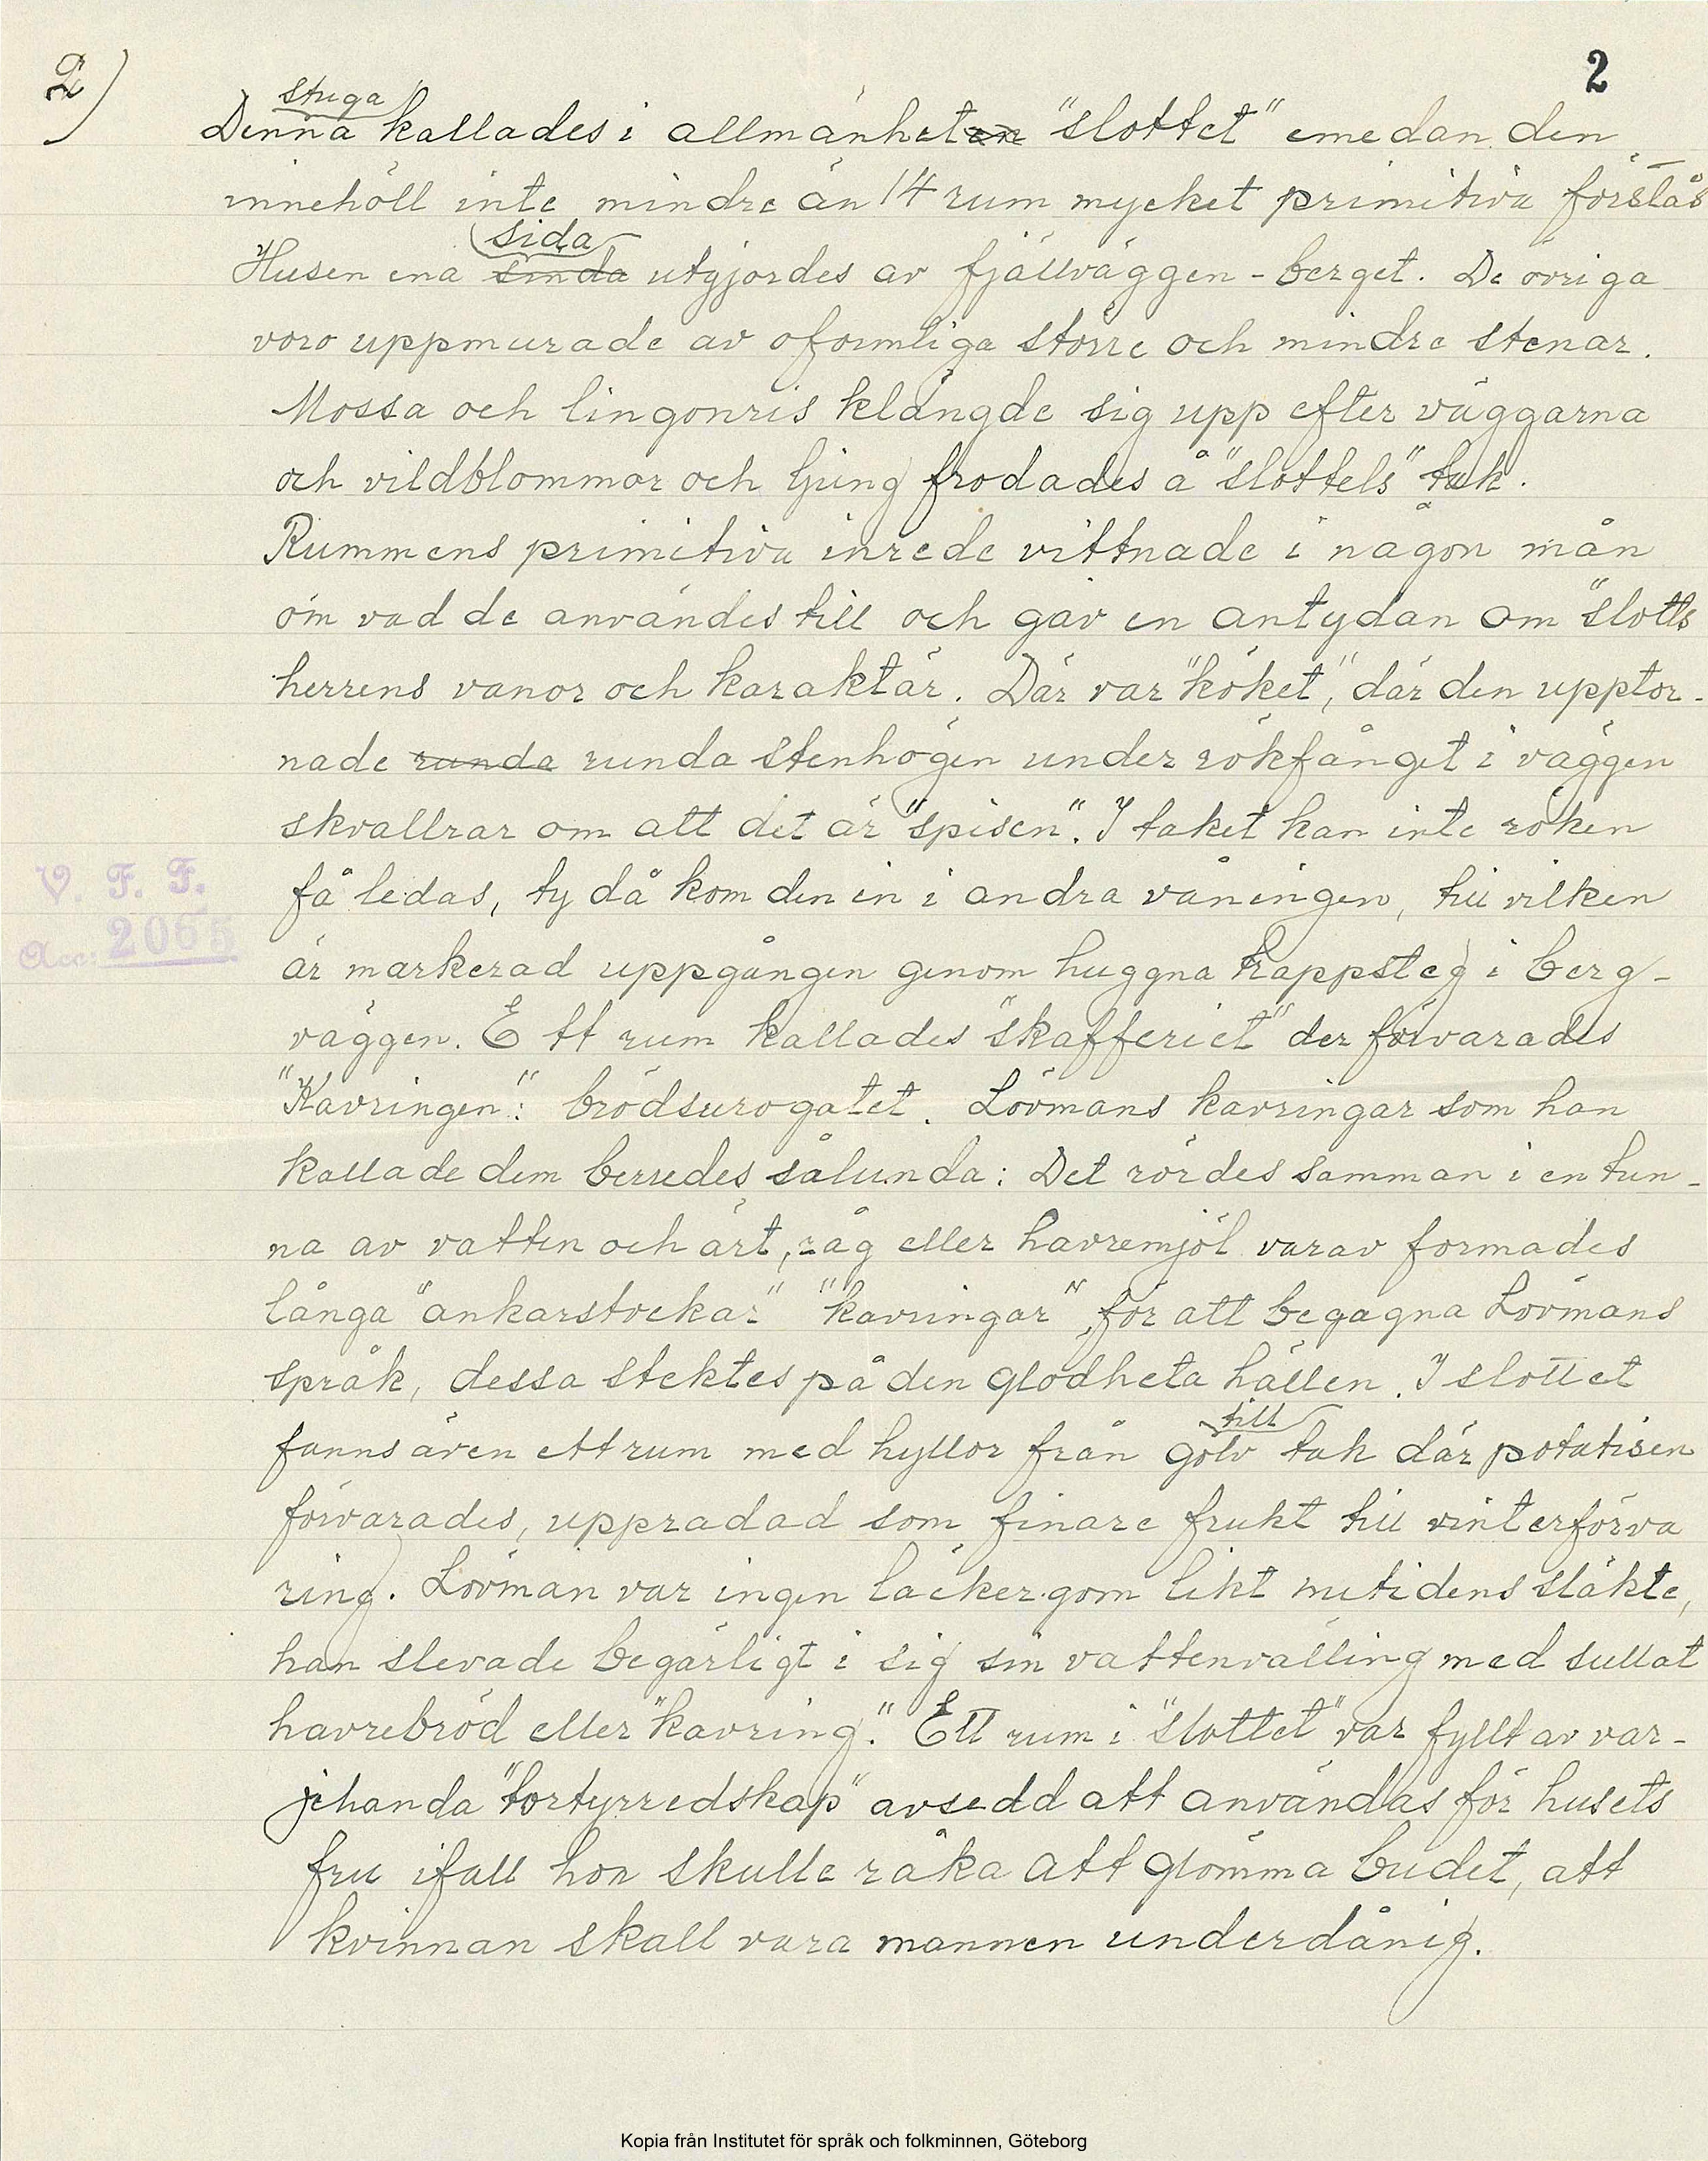 2)
2
stuga
Denna kallades i allmänheten "slottet" emedan den
innehöll inte mindre än 14 rum mycket primitiva förstås
sida
Husen ena sinda utgjordes av fjällväggen - berget. De övriga
voro uppmurade av oformliga större och mindre stenar.
Mossa och lingonris klängde sig upp efter väggarna
och vildblommor och ljung frodades å "slottets" tak.
Rummens primitiva inrede vittnade i någon mån
om vad de användes till och gav en antydan om "slotts
herrens vanor och karaktär. Där var "köket", där den upptor-
nade runda runda stenhögen under rökfånget i väggen
skvallrar om att det är "spisen". I taket kan inte röken
få ledas, ty då kom den in i andra våningen, till vilken
är markerad uppgången genom huggna trappsteg i berg-
väggen. Ett rum kallades "skafferiet" der förvarades
"Kavringen": brödsurogatet. Lövmans kavringar som han
kallade dem berredes sålunda: Det rördes samman i en tun-
na av vatten och ärt, råg eller havremjöl varav formades
långa "ankarstockar" "kavringar", för att begagna Lövmans
språk, dessa stektes på den glödheta hällen. I slottet
till
fanns även ett rum med hyllor från golv tak där potatisen
förvarades, uppradad som finare frukt till vinterförva
ring. Lövman var ingen läckergom likt nutidens släkte,
han slevade begärligt i sig sin vattenvälling med sullat
havrebröd eller "kavring". Ett rum i "slottet" var fyllt av var-
jehanda "tortyrredskap" avsedd att användas för husets
fru ifall hon skulle råka att glömma budet, att
kvinnan skall vara mannen underdånig.
V. F. F.
Acc: 2065
Kopia från Institutet för språk och folkminnen, Göteborg